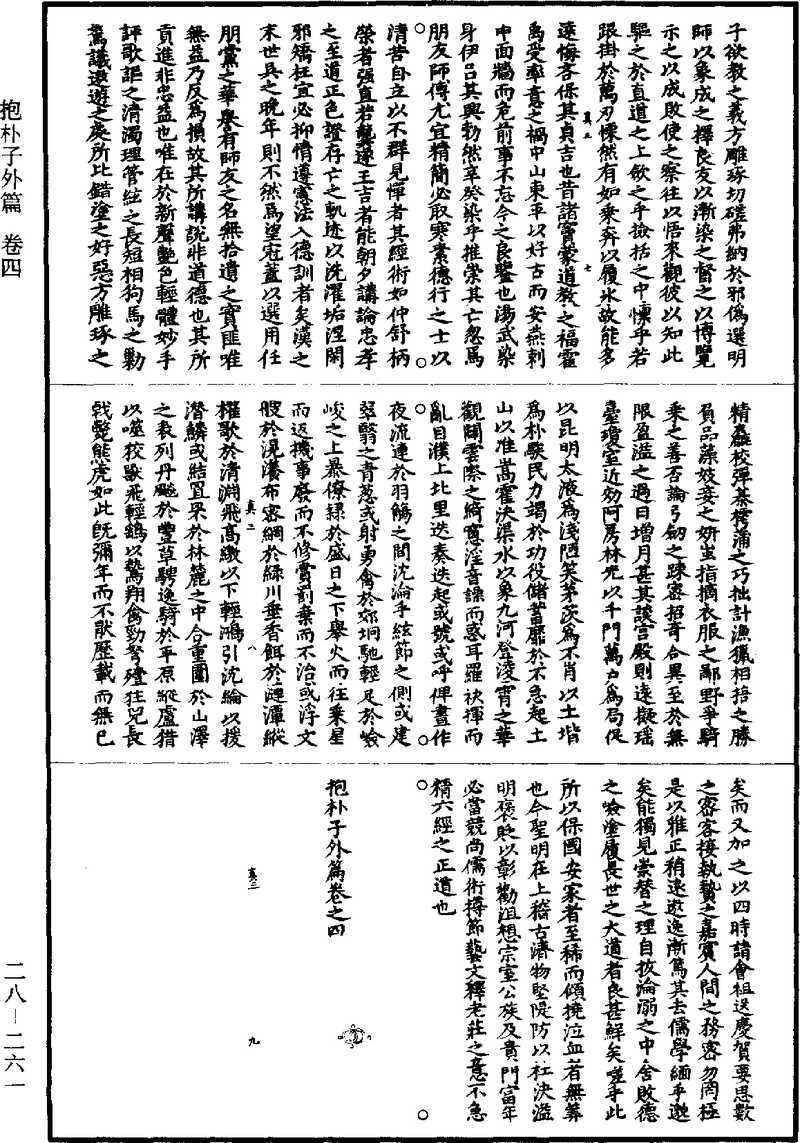 抱朴子外篇　卷四
二八－二六一
子欲教之義方雕琢切磋弗納於邪偽選明
師以象成之擇良友以漸染之督之以博覽
示之以成敗使之察往以悟來觀彼以知此
驅之於直道之上斂之乎檢括之中懍乎若
跟掛於萬刃慄然有如乘奔以履氷故能多
真二
七
遠悔吝保其貞吉也昔諸竇蒙遺教之福霍
禹受率意之禍中山東平以好古而安燕刺
由面牆而危前事不忘今之良鑒也湯武染
乎伊呂其興勃然辛癸染乎推崇其亡忽焉
朋友師傅尤宜精簡必取寒素德行之士以
清苦自立以不群見憚者其經術如仲舒桓
榮者强直若龔遂王吉者能朝夕講論忠孝
之至道正色證存亡之軌迹以洗濯垢涅閑
邪矯枉宜必抑情遵憲法入德訓者矣漢之
末世吳之晚年則不然焉望冠蓋以選用任
朋黨之華譽有師友之名無拾遺之實匪唯
無益乃反為損故其所講說非道德也其所
貢進非忠益也唯在於新聲艷色輕體妙手
評歌謳之清濁理管絃之長短相狗馬之勦
駑議遨遊之處所比錯塗之好惡方雕琢之
精麤校彈棊樗蒲之巧拙計漁獵相掊之勝
負品藻妓妾之妍蚩指摘衣服之鄙野爭騎
乘之善否論弓劒之疎密招奇合異至於無
限盈溢之過日增月甚其談宮殿則遠擬瑤
臺瓊室近効阿房林光以千門萬戶為局促
以昆明太液為淺陋笑茅茨為不肖以土堦
為朴騃民力竭於功役儲蓄靡於不急起土
山以准嵩霍決渠水以象九河登凌霄之華
觀闢雲際之綺窓淫音譟而惑耳羅袂揮而
亂目濮上北里迭奏迭起或號或呼俾晝作
夜流連於羽觴之間沈淪乎絃節之側或建
翠翳之青葱或射勇禽於郊坰馳輕足於嶮
峻之上暴僚隷於盛日之下舉火而往乘星
而返機事廢而不修賞罰棄而不治或浮文
艘於滉瀁布密網於綠川垂香餌於漣潭縱
真二
八
櫂歌於清淵飛高繳以下輕鴻引沈綸以拔
潛鱗或結罝罘於林麓之中合重圍於山澤
之表列丹飈於豐草騁逸騎於平原縱盧猎
以噬狡獸飛輕鷂以鷙翔禽勁弩殪狂兕長
戟斃熊虎如此旣彌年而不猒歷載而無已
矣而又加之以四時請會祖送慶賀要思數
之密客接執贄之嘉賓人間之務密勿罔極
是以雅正稍遠遨逸漸篤其去儒學緬乎邈
矣能獨見崇替之理自拔淪溺之中舍敗德
之嶮塗履長世之大道者良甚鮮矣嗟乎此
所以保國安家者至稀而傾撓泣血者無筭
也今聖明在上稽古濟物堅隄防以杜決溢
明褒貶以彰勸沮想宗室公族及貴門富年
必當競尚儒術撙節藝文釋老莊之意不急
精六經之正道也
抱朴子外篇卷之四
真三
九